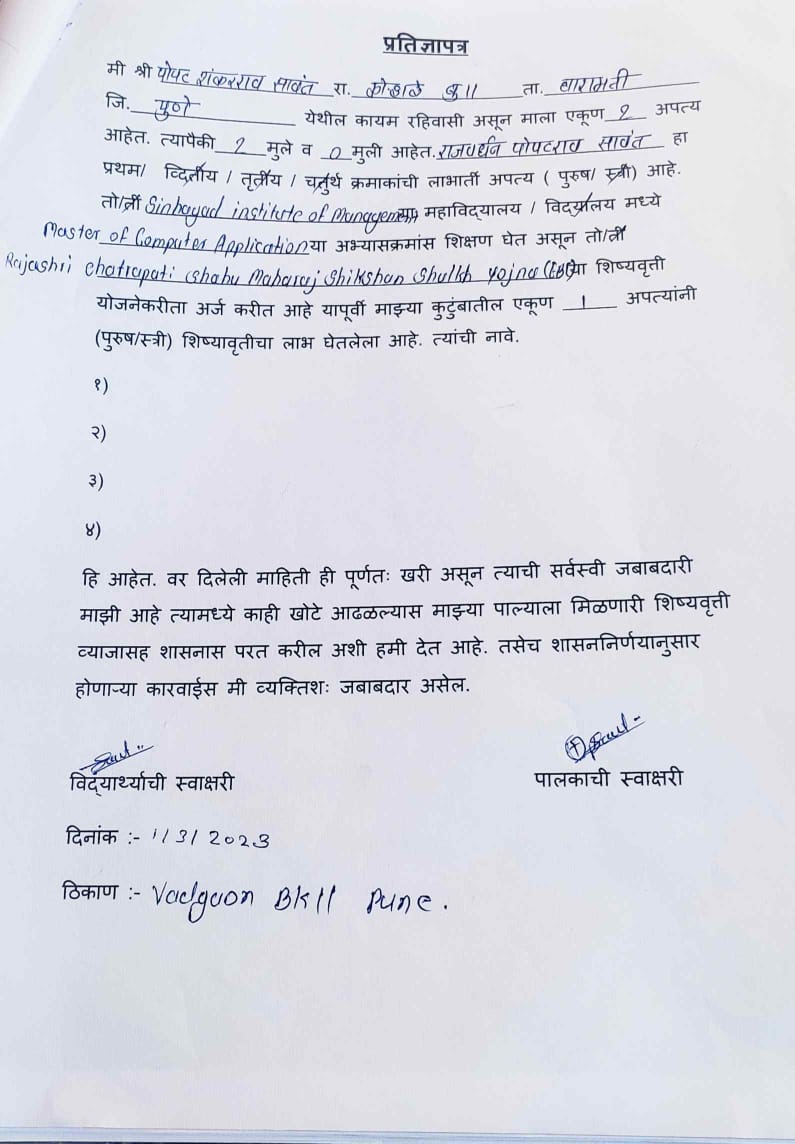 प्रतिज्ञापत्र
मी श्री पोपट शंकरराव सावंत रा. कोऱ्हाळे बु॥ ता. बारामती
जि. पुणे येथील कायम रहिवासी असून माला एकूण 2 अपत्य
आहेत. त्यापैकी 2 मुले व 0 मुली आहेत. राजवर्धन पोपटराव सावंत हा
प्रथम/ व्दितीय / तृतीय / चतुर्थ क्रमाकांची लाभार्ती अपत्य ( पुरुष/ स्त्री) आहे.
तो/त्री Sinhagad institute of Management या महाविद्यालय / विद्यालय मध्ये
Master of Computer Application या अभ्यासक्रमांस शिक्षण घेत असून तो/त्री
Rajashri chatrapati shahu Maharaj Shikshan Shulkh yojna (EBC) या शिष्यवृत्ती
योजनेकरीता अर्ज करीत आहे यापूर्वी माझ्या कुटुंबातील एकूण 1 अपत्यांनी
(पुरुष/स्त्री) शिष्यावृतीचा लाभ घेतलेला आहे. त्यांची नावे.
१)
२)
३)
४)
हि आहेत. वर दिलेली माहिती ही पूर्णतः खरी असून त्याची सर्वस्वी जबाबदारी
माझी आहे त्यामध्ये काही खोटे आढळल्यास माझ्या पाल्याला मिळणारी शिष्यवृत्ती
व्याजासह शासनास परत करील अशी हमी देत आहे. तसेच शासननिर्णयानुसार
होणाऱ्या कारवाईस मी व्यक्तिशः जबाबदार असेल.
विद्यार्थ्याची स्वाक्षरी पालकाची स्वाक्षरी
दिनांक :- 1/3/2023
ठिकाण :- Vadgaon BK11 Pune.